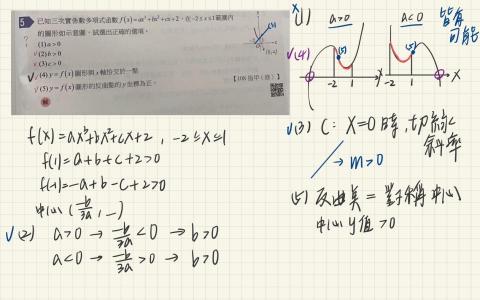 5 已知三次實係數多項式函數 f(x)=ax³+bx²+cx+2，在 -2≤x≤1 範圍內
的圖形如示意圖，試選出正確的選項。
(1) a>0
(2) b>0
(3) c>0
(4) y=f(x) 圖形與 x 軸恰交於一點
(5) y=f(x) 圖形的反曲點的 y 坐標為正。
【108 指甲(補)】
f(x)=ax³+bx²+cx+2 , -2≤x≤1
f(1)=a+b+c+2>0
f(-1)=-a+b-c+2>0
中心 (-b/3a, _)
√(2) a>0 → -b/3a<0 → b>0
a<0 → -b/3a>0 → b>0
x(1) a>0 a<0 皆有
可能
√(4) (5) (5)
-2 1 x -2 1 x
√(3) C: x=0時,切線
斜率
→ m>0
(5) 反曲點 = 對稱中心
中心y值>0